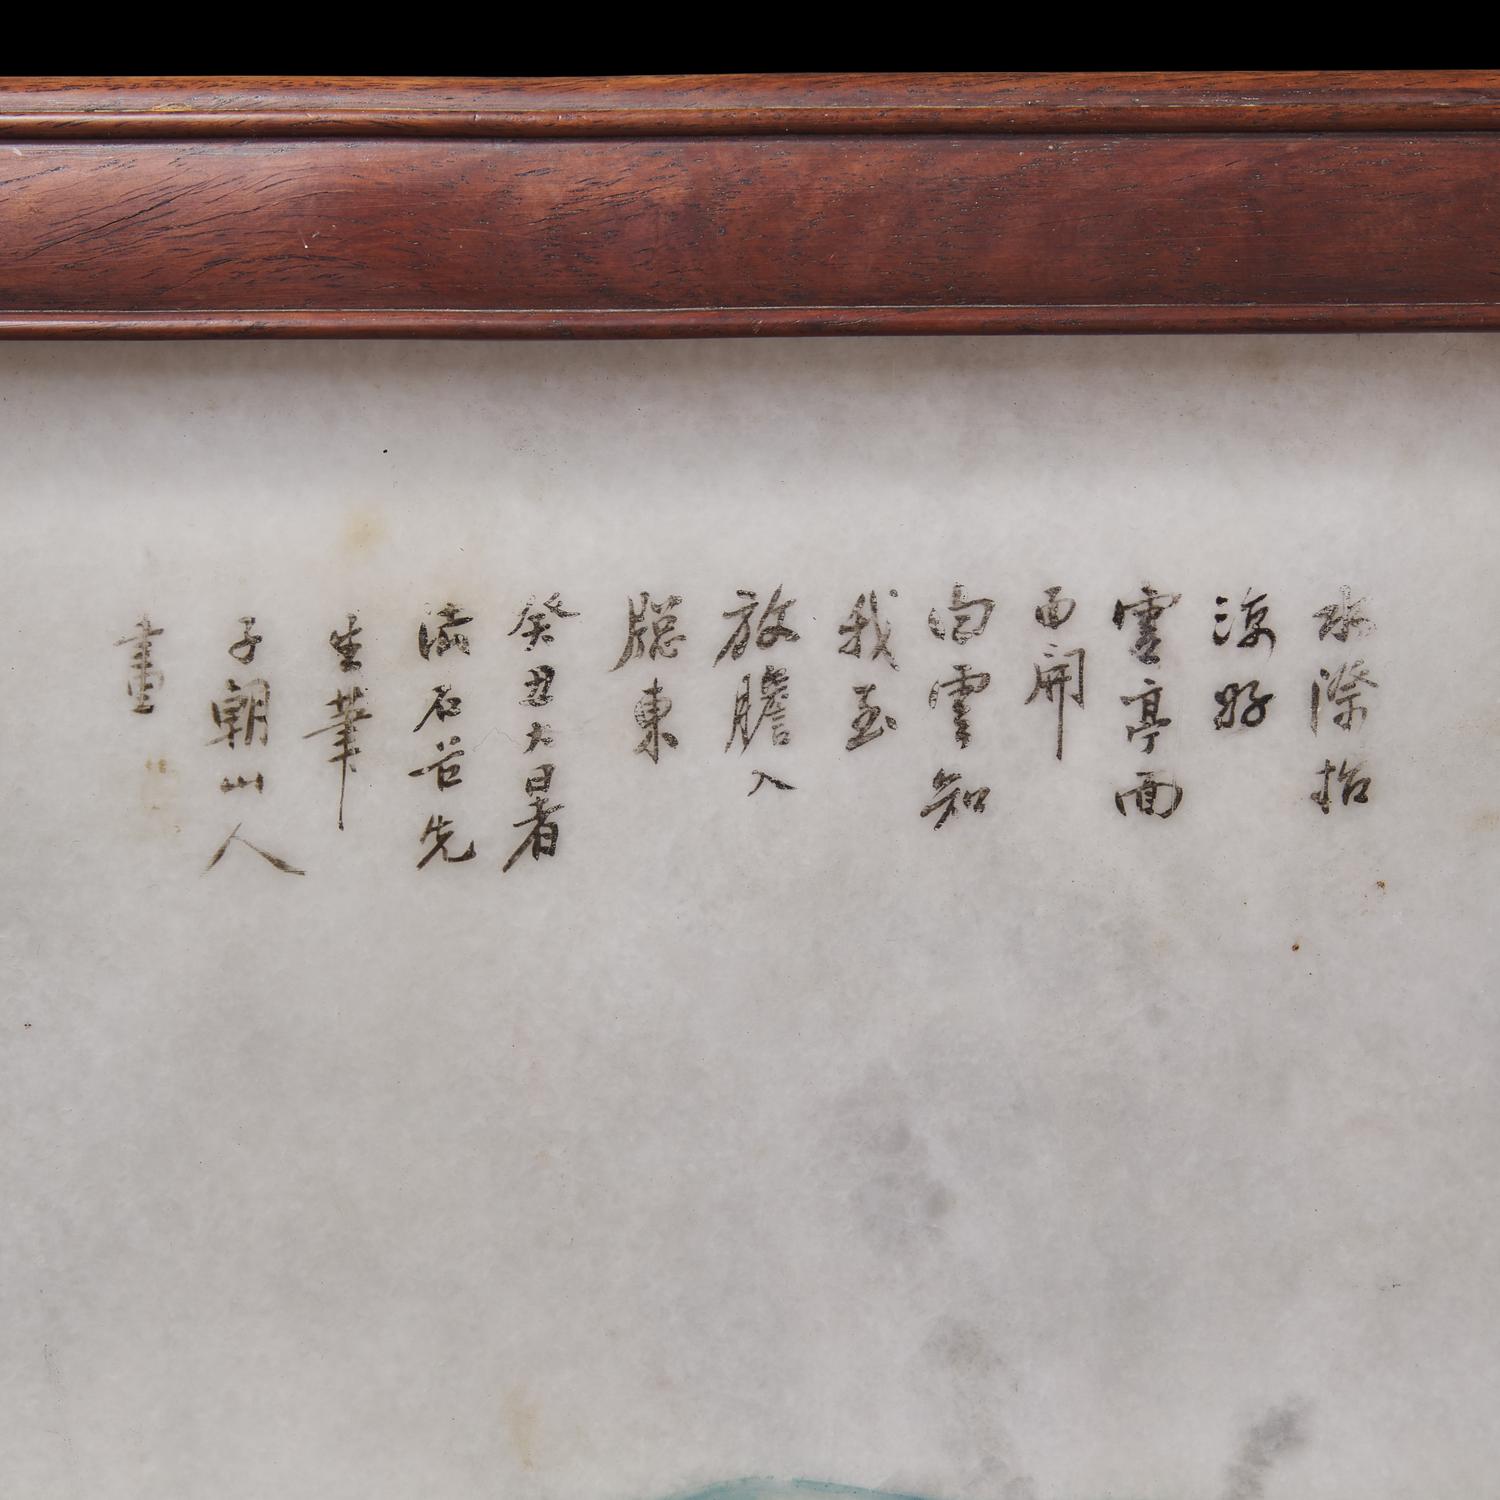 水際招
涼好
虛亭面
面開
白雲知
我至
放膽入
牕東
癸丑大暑
石谷先
生筆
子朝山人
畫